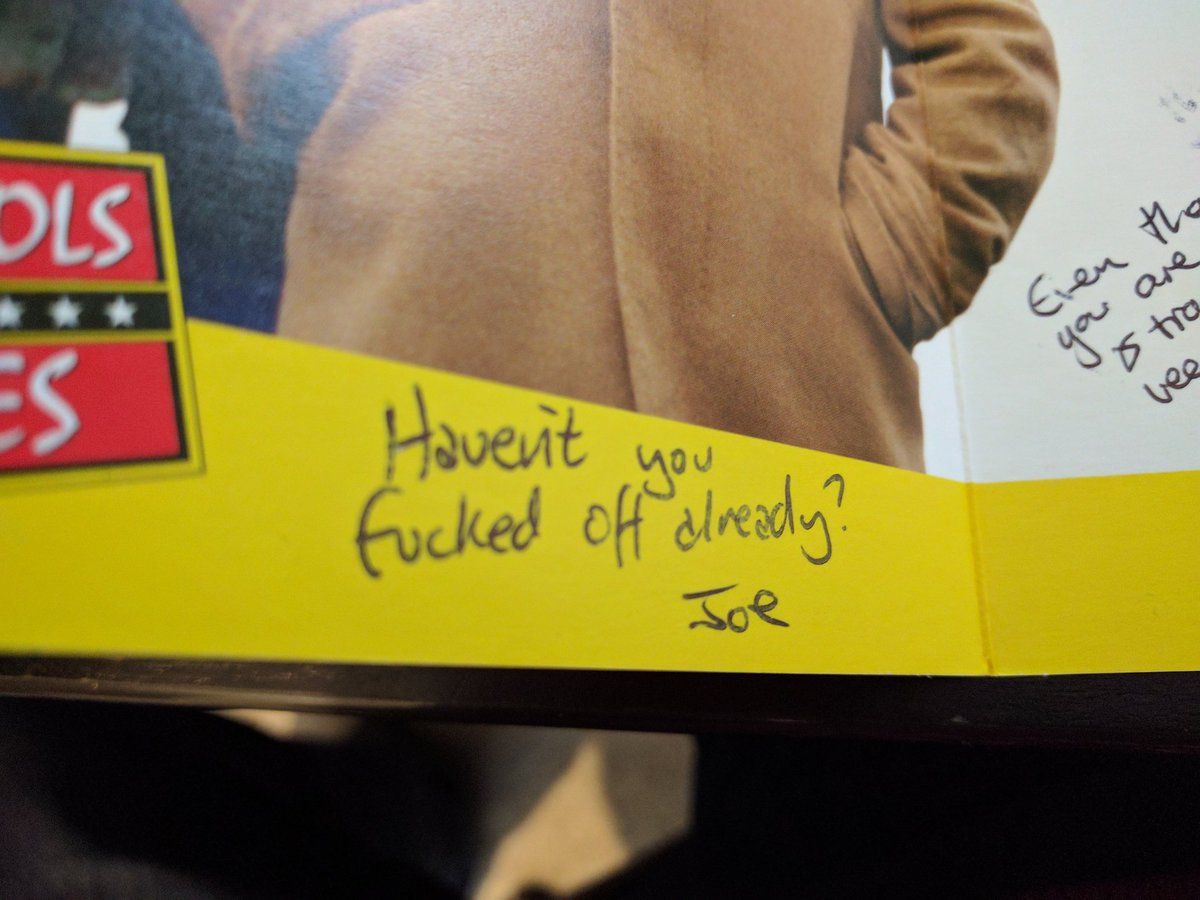 OLS
ES
Haven't you
fucked off already?
Joe
Even tho
you are
is tra
wee